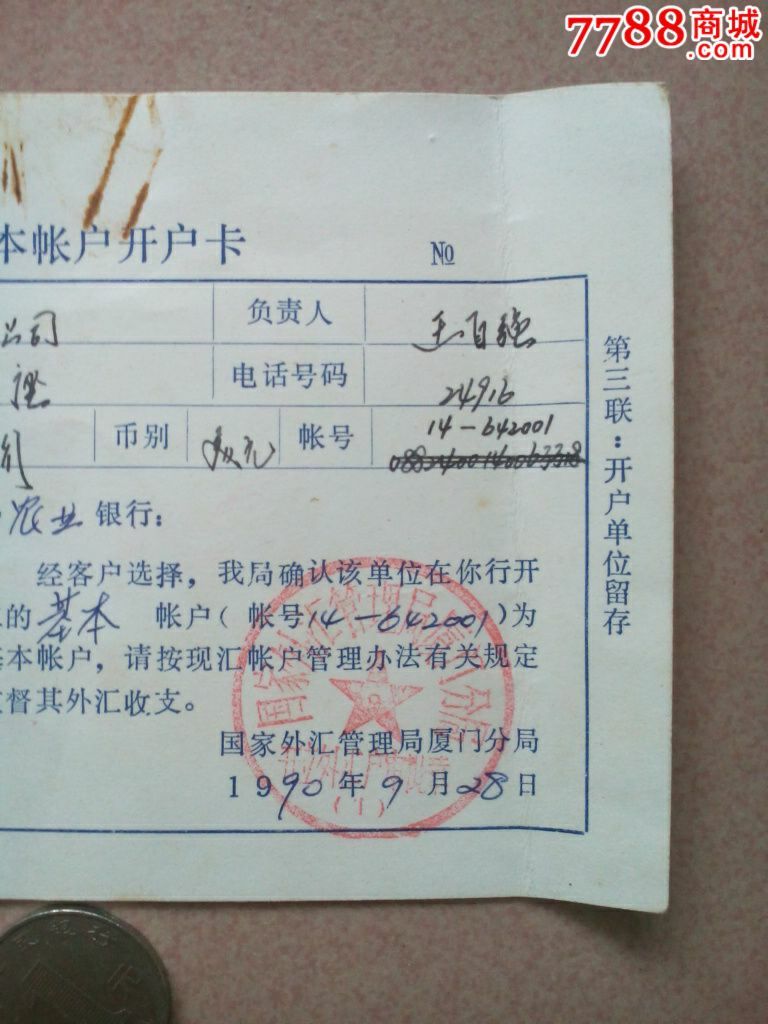 7788商城
.com
本帐户开户卡 №
公司 负责人 王自强
电话号码 24916
币别 美元 帐号 14-642001
农业 银行：
经客户选择，我局确认该单位在你行开
的 基本 帐户（帐号14-642001）为
基本帐户，请按现汇帐户管理办法有关规定
监督其外汇收支。
国家外汇管理局厦门分局
1990年9月28日
第三联：开户单位留存
国家外汇管理局厦门分局
(1)